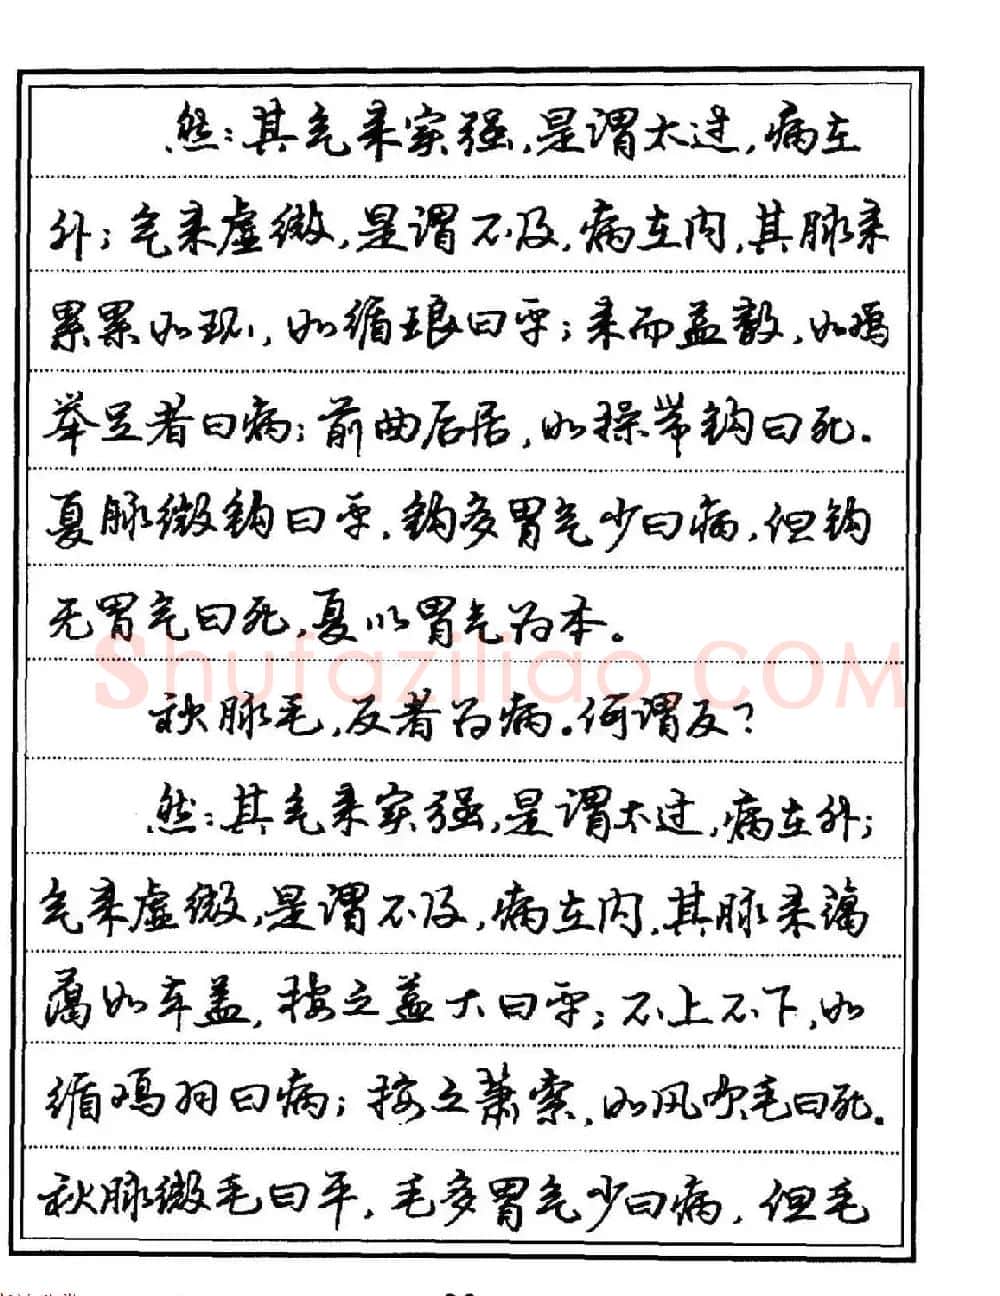 然：其气来实强，是谓太过，病在
外；气来虚微，是谓不及，病在内，其脉来
累累如环，如循琅曰平；来而益数，如鸡
举足者曰病；前曲后居，如操带钩曰死。
夏脉微钩曰平，钩多胃气少曰病，但钩
无胃气曰死，夏以胃气为本。
shufaziliao.COM
秋脉毛，反者为病。何谓反？
然：其气来实强，是谓太过，病在外；
气来虚微，是谓不及，病在内，其脉来蔼
蔼如车盖，按之益大曰平；不上不下，如
循鸡羽曰病；按之萧索，如风吹毛曰死。
秋脉微毛曰平，毛多胃气少曰病，但毛